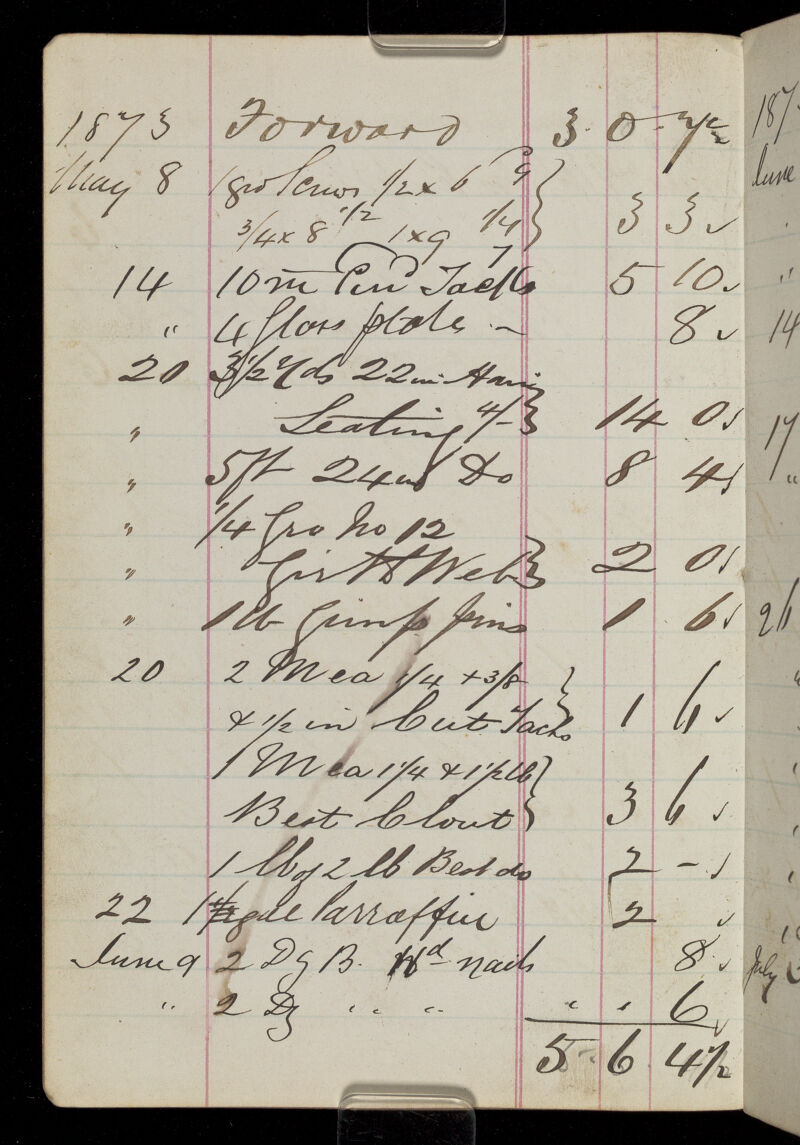 1873 Forward 3. 0. 7 1/2
May 8 1 gro Screws 1/2 x 6 9
3/4 x 8 1/2 1 x 9 1/4 3 3
14 10 m Pin Tacks 5 10
" 4 Glass plates - 8
20 3 1/2 Yds 22 in Hair
" Seating 4/- 14 0
" 5 ft 24 in Do 8 4
" 1/4 Gro No 12
" Girth Web 2 0
" 1 lb Gimp pins 1 6
20 2 M ea 1/4 + 3/8
& 1/2 in Cut Tacks 1 6
1 M ea 1 1/4 & 1 1/2 lb
Best Clout 3 6
1 lb of 2 lb Best do 2 -
22 1 gall Parraffin 2
June 9 2 Dz B. Hd nails 8
" 2 Dz " " " " " 6
5. 6 4 1/2
187
June
"
14
17
"
26
July